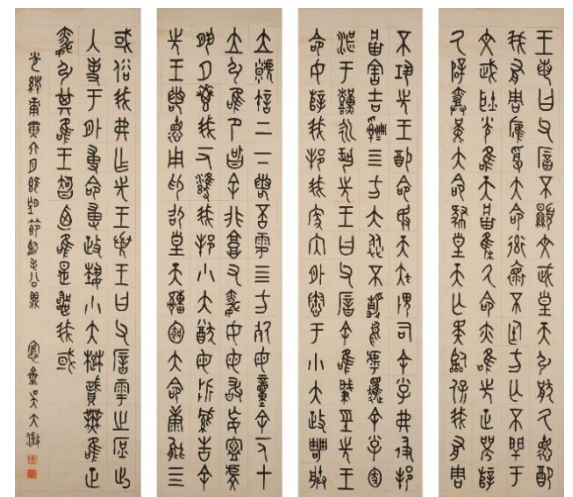 王若曰父㢉不顯文武皇天弘猒氒德配
我有周膺受大命率懷不廷方亡不閈于
文武耿光唯天集氒命亦唯先正辥
氒辟大命肆皇天亡斁臨保我有周
不巩先王配命旻天疾畏司余小子弗彶邦
害吉四方大從不靜烏虖趯余小子圂
湛于艱永巩先王王曰父㢉今余唯肇巠先王
命命女辥我邦我家內外惷于小大政甹朕
立虩許上下若否雩四方死毋童余一人在
立弘唯乃智余非庸又昏女毋敢妄寧虔
夙夕惠我一人我邦小大猷毋折緘告余
先王若德用卬卲皇天大命康能四
或俗我弗作先王憂王曰父㢉雩之庶出
入事于外敷命敷政埶小大楚賦無唯正
昏弘其唯王智迺唯是喪我或
光緒庚寅六月既望節臨毛公鼎 愙齋吳大澂